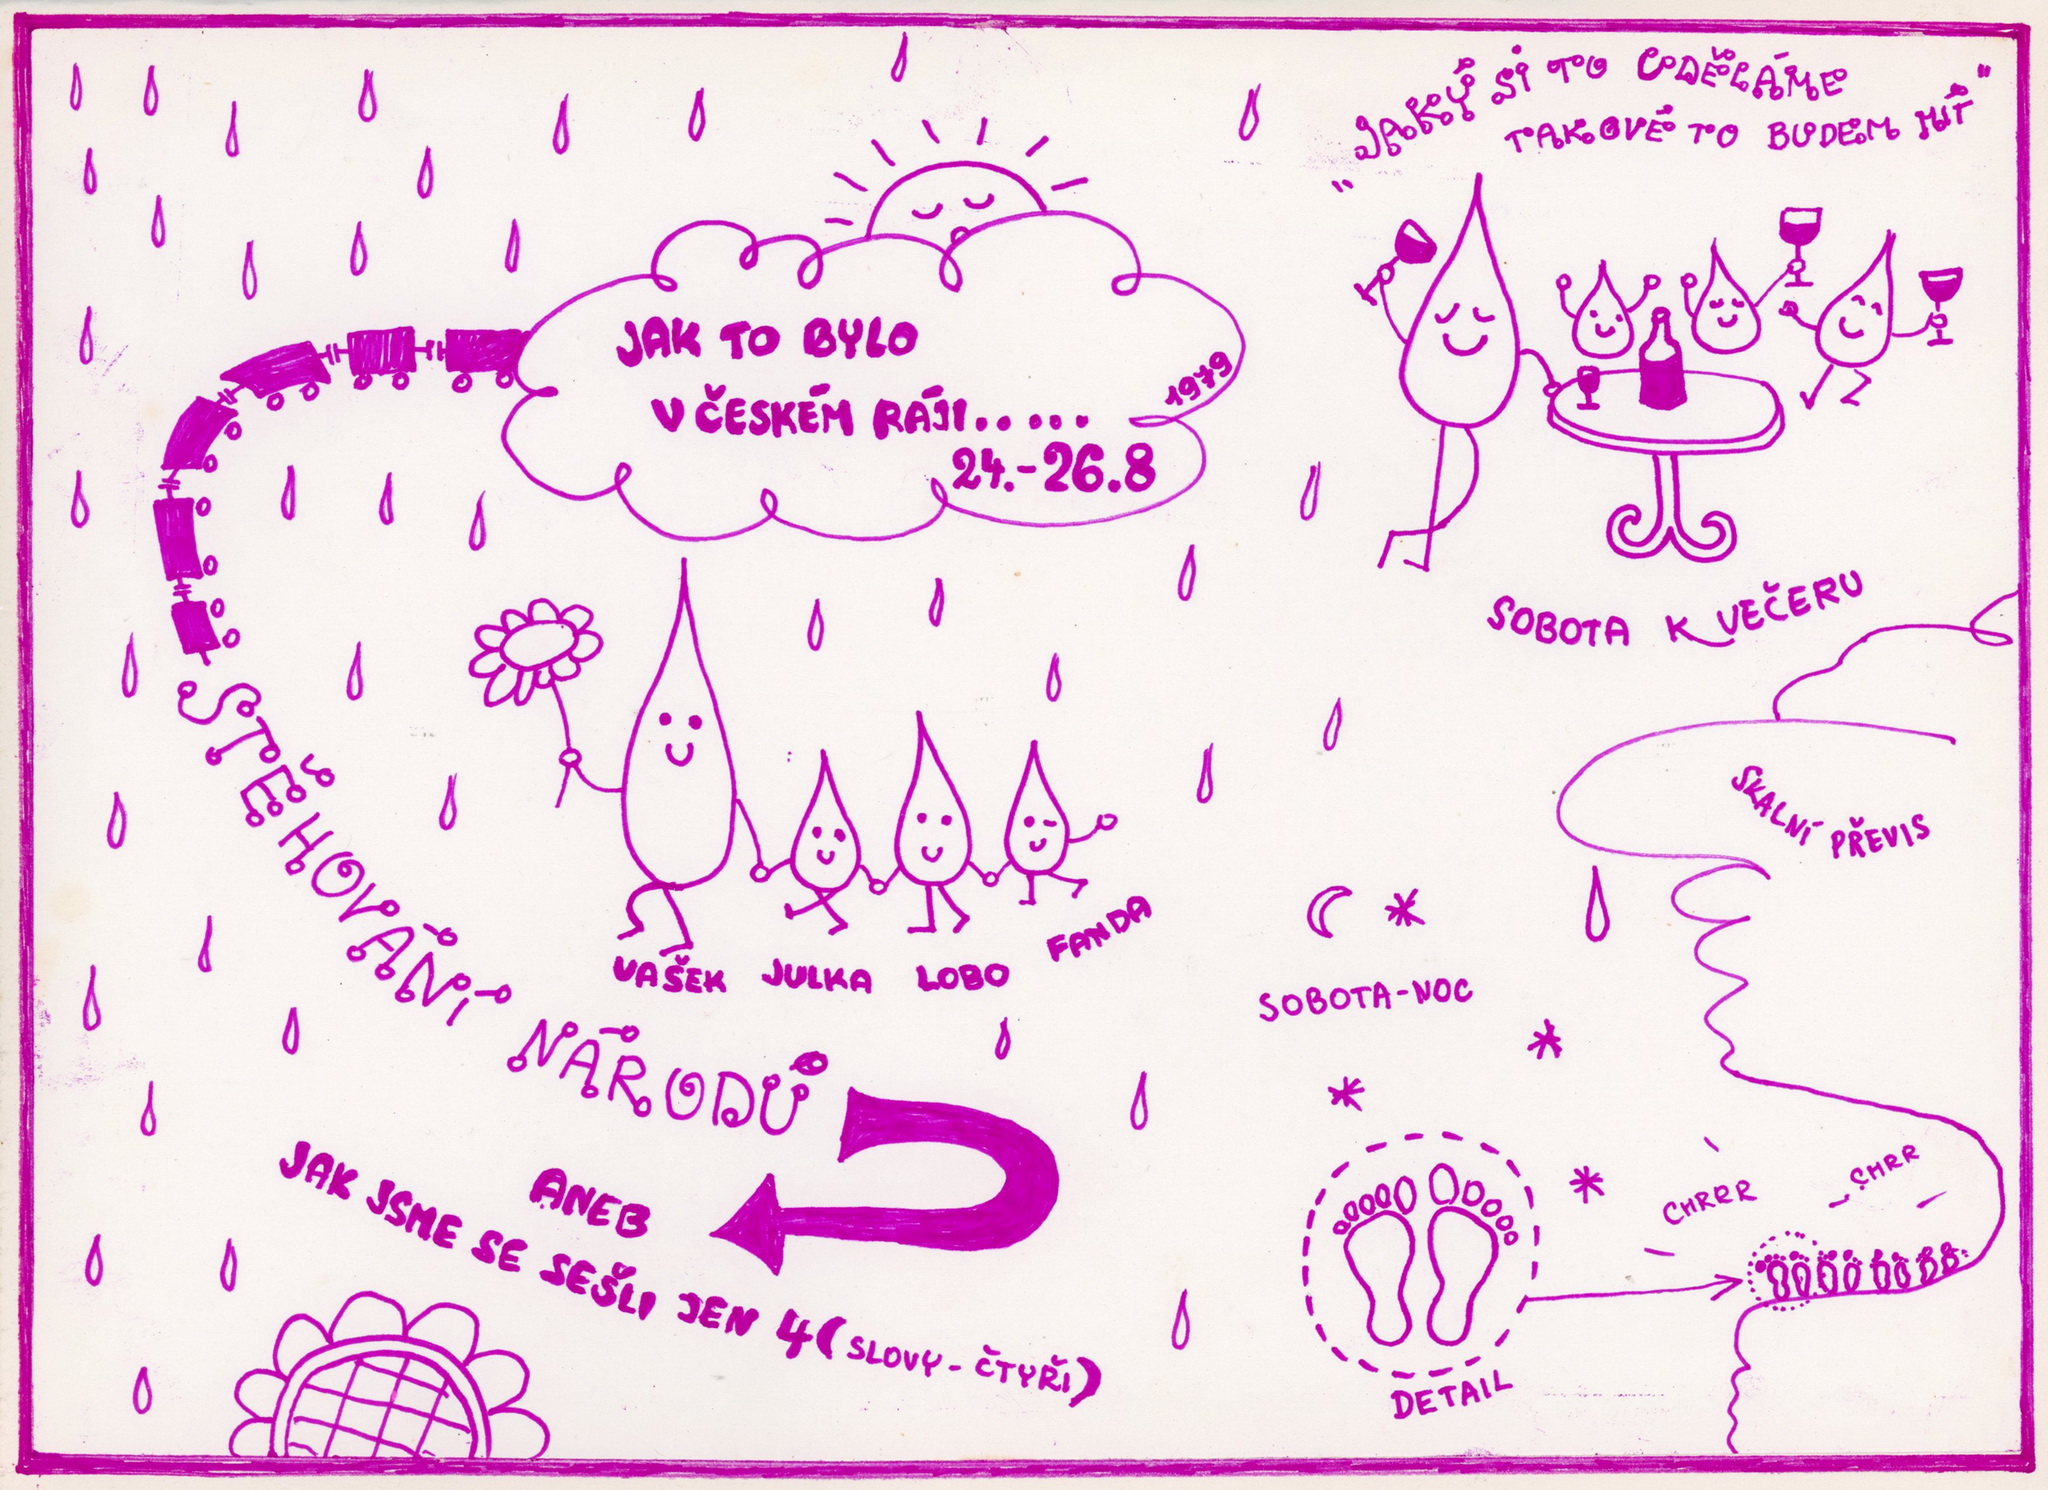 JAK TO BYLO
V ČESKÉM RÁJI.....
1979
24.-26.8
STĚHOVÁNÍ NÁRODŮ
ANEB
JAK JSME SE SEŠLI JEN 4 (SLOVY - ČTYŘI)
VAŠEK JULKA LOBO FANDA
"JAKÝ SI TO UDĚLÁME
TAKOVÉ TO BUDEM MÍT"
SOBOTA K VEČERU
SKALNÍ PŘEVIS
SOBOTA-NOC
CHRRR
CHRR
DETAIL